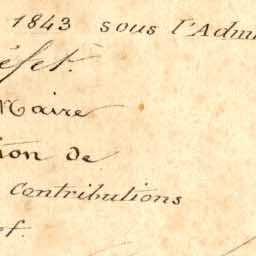 1843 sous l'Adm
éfet.
Maire
tion de
Contributions
ef.